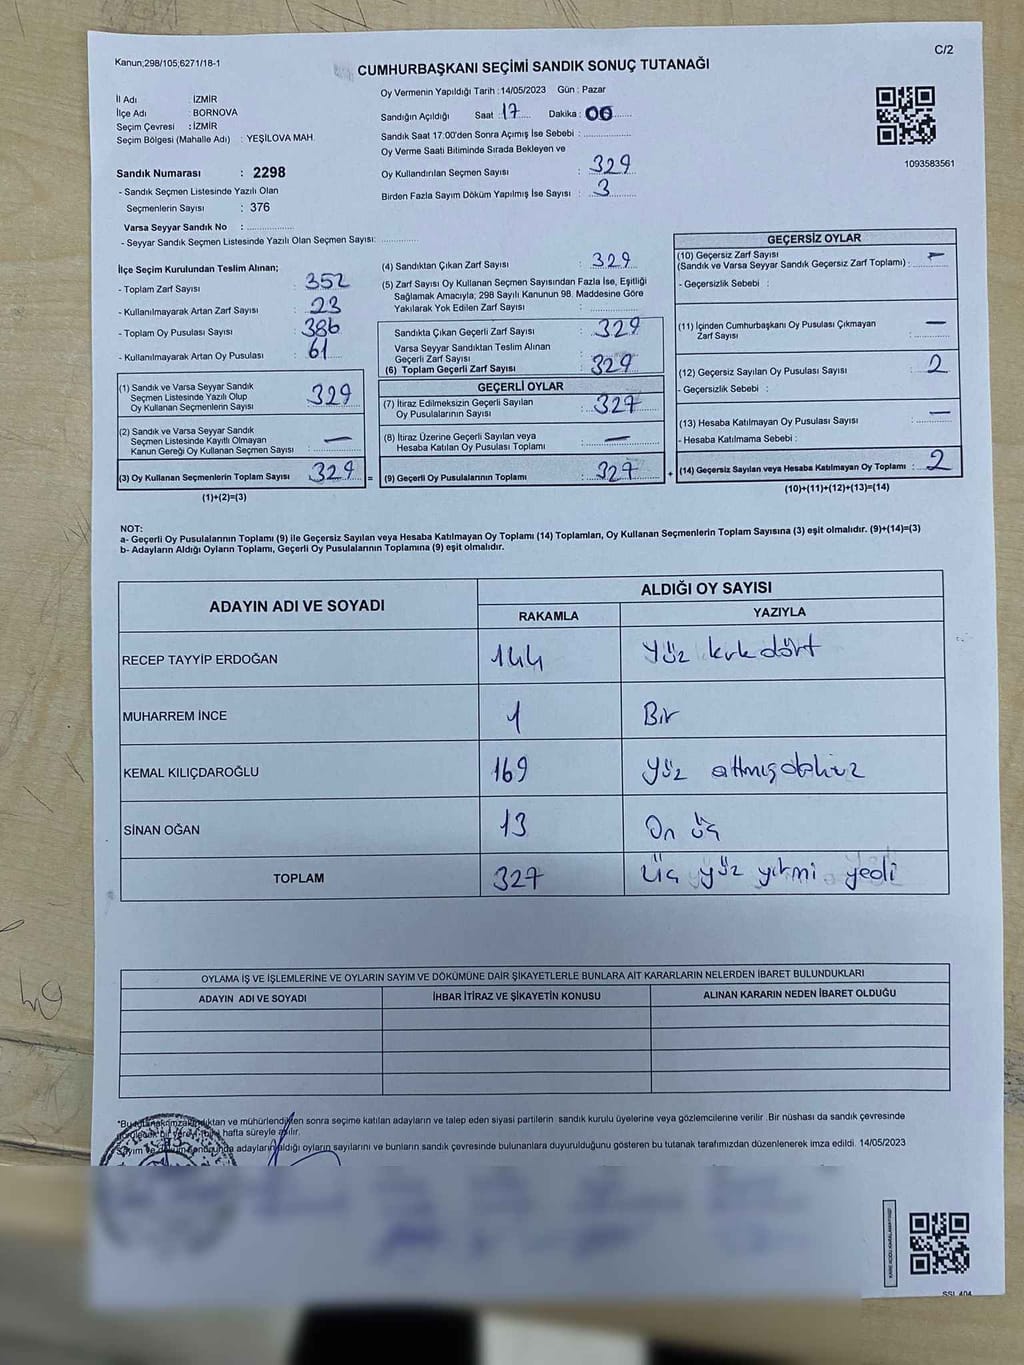 Kanun;298/105;6271/18-1
C/2
CUMHURBAŞKANI SEÇİMİ SANDIK SONUÇ TUTANAĞI
İl Adı : İZMİR
İlçe Adı : BORNOVA
Seçim Çevresi : İZMİR
Seçim Bölgesi (Mahalle Adı) : YEŞİLOVA MAH.
Sandık Numarası : 2298
- Sandık Seçmen Listesinde Yazılı Olan
Seçmenlerin Sayısı : 376
Varsa Seyyar Sandık No : ................
- Seyyar Sandık Seçmen Listesinde Yazılı Olan Seçmen Sayısı: ............
Oy Vermenin Yapıldığı Tarih : 14/05/2023 Gün : Pazar
Sandığın Açıldığı Saat : 17 Dakika : 00
Sandık Saat 17:00'den Sonra Açımış İse Sebebi : ................
Oy Verme Saati Bitiminde Sırada Bekleyen ve
Oy Kullandırılan Seçmen Sayısı : 329
Birden Fazla Sayım Döküm Yapılmış İse Sayısı : 3
1093583561
İlçe Seçim Kurulundan Teslim Alınan;
- Toplam Zarf Sayısı : 352
- Kullanılmayarak Artan Zarf Sayısı : 23
- Toplam Oy Pusulası Sayısı : 386
- Kullanılmayarak Artan Oy Pusulası : 61
(1) Sandık ve Varsa Seyyar Sandık
Seçmen Listesinde Yazılı Olup
Oy Kullanan Seçmenlerin Sayısı : 329
(2) Sandık ve Varsa Seyyar Sandık
Seçmen Listesinde Kayıtlı Olmayan
Kanun Gereği Oy Kullanan Seçmen Sayısı : —
(3) Oy Kullanan Seçmenlerin Toplam Sayısı : 329
(1)+(2)=(3)
(4) Sandıktan Çıkan Zarf Sayısı : 329
(5) Zarf Sayısı Oy Kullanan Seçmen Sayısından Fazla İse, Eşitliği
Sağlamak Amacıyla; 298 Sayılı Kanunun 98. Maddesine Göre
Yakılarak Yok Edilen Zarf Sayısı : ................
Sandıkta Çıkan Geçerli Zarf Sayısı : 329
Varsa Seyyar Sandıktan Teslim Alınan
Geçerli Zarf Sayısı
(6) Toplam Geçerli Zarf Sayısı : 329
GEÇERLİ OYLAR
(7) İtiraz Edilmeksizin Geçerli Sayılan
Oy Pusulalarının Sayısı : 327
(8) İtiraz Üzerine Geçerli Sayılan veya
Hesaba Katılan Oy Pusulası Toplamı : —
= (9) Geçerli Oy Pusulalarının Toplamı : 327
GEÇERSİZ OYLAR
(10) Geçersiz Zarf Sayısı
(Sandık ve Varsa Seyyar Sandık Geçersiz Zarf Toplamı) : —
- Geçersizlik Sebebi :
(11) İçinden Cumhurbaşkanı Oy Pusulası Çıkmayan
Zarf Sayısı : —
(12) Geçersiz Sayılan Oy Pusulası Sayısı : 2
- Geçersizlik Sebebi :
(13) Hesaba Katılmayan Oy Pusulası Sayısı : —
- Hesaba Katılmama Sebebi :
+ (14) Geçersiz Sayılan veya Hesaba Katılmayan Oy Toplamı : 2
(10)+(11)+(12)+(13)=(14)
NOT:
a- Geçerli Oy Pusulalarının Toplamı (9) ile Geçersiz Sayılan veya Hesaba Katılmayan Oy Toplamı (14) Toplamları, Oy Kullanan Seçmenlerin Toplam Sayısına (3) eşit olmalıdır. (9)+(14)=(3)
b- Adayların Aldığı Oyların Toplamı, Geçerli Oy Pusulalarının Toplamına (9) eşit olmalıdır.
ADAYIN ADI VE SOYADI
ALDIĞI OY SAYISI
RAKAMLA YAZIYLA
RECEP TAYYİP ERDOĞAN 144 Yüz kırkdört
MUHARREM İNCE 1 Bir
KEMAL KILIÇDAROĞLU 169 Yüz altmışdokuz
SİNAN OĞAN 13 On üç
TOPLAM 327 Üç yüz yirmi yedi
OYLAMA İŞ VE İŞLEMLERİNE VE OYLARIN SAYIM VE DÖKÜMÜNE DAİR ŞİKAYETLERLE BUNLARA AİT KARARLARIN NELERDEN İBARET BULUNDUKLARI
ADAYIN ADI VE SOYADI İHBAR İTİRAZ VE ŞİKAYETİN KONUSU ALINAN KARARIN NEDEN İBARET OLDUĞU
ve mühürlendikten sonra seçime katılan adayların ve talep eden siyasi partilerin sandık kurulu üyelerine veya gözlemcilerine verilir. Bir nüshası da sandık çevresinde
hafta süreyle asılır.
adayların aldığı oyların sayılarını ve bunların sandık çevresinde bulunanlara duyurulduğunu gösteren bu tutanak tarafımızdan düzenlenerek imza edildi. 14/05/2023
64